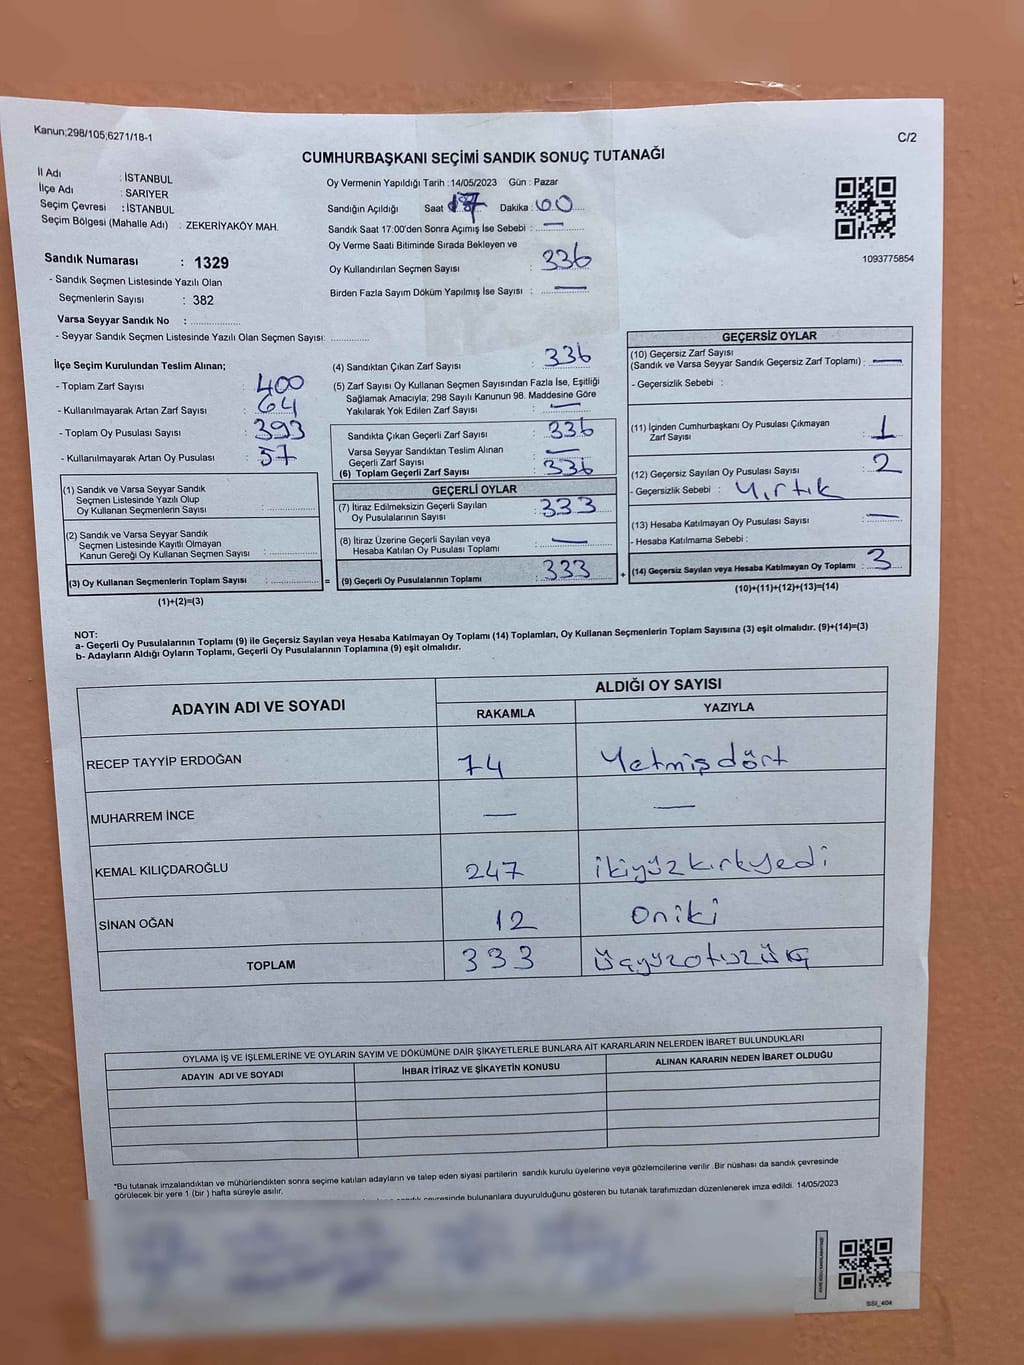 Kanun;298/105,6271/18-1
C/2
CUMHURBAŞKANI SEÇİMİ SANDIK SONUÇ TUTANAĞI
İl Adı : İSTANBUL
İlçe Adı : SARIYER
Seçim Çevresi : İSTANBUL
Seçim Bölgesi (Mahalle Adı) : ZEKERİYAKÖY MAH.
Oy Vermenin Yapıldığı Tarih : 14/05/2023 Gün : Pazar
Sandığın Açıldığı Saat : 17 Dakika : 00
Sandık Saat 17:00'den Sonra Açımış İse Sebebi : —
Oy Verme Saati Bitiminde Sırada Bekleyen ve
Oy Kullandırılan Seçmen Sayısı : 336
Birden Fazla Sayım Döküm Yapılmış İse Sayısı : —
1093775854
Sandık Numarası : 1329
- Sandık Seçmen Listesinde Yazılı Olan
Seçmenlerin Sayısı : 382
Varsa Seyyar Sandık No :
- Seyyar Sandık Seçmen Listesinde Yazılı Olan Seçmen Sayısı:
İlçe Seçim Kurulundan Teslim Alınan;
- Toplam Zarf Sayısı : 400
- Kullanılmayarak Artan Zarf Sayısı : 64
- Toplam Oy Pusulası Sayısı : 393
- Kullanılmayarak Artan Oy Pusulası : 57
(1) Sandık ve Varsa Seyyar Sandık
Seçmen Listesinde Yazılı Olup
Oy Kullanan Seçmenlerin Sayısı :
(2) Sandık ve Varsa Seyyar Sandık
Seçmen Listesinde Kayıtlı Olmayan
Kanun Gereği Oy Kullanan Seçmen Sayısı :
(3) Oy Kullanan Seçmenlerin Toplam Sayısı : =
(1)+(2)=(3)
(4) Sandıktan Çıkan Zarf Sayısı : 336
(5) Zarf Sayısı Oy Kullanan Seçmen Sayısından Fazla İse, Eşitliği
Sağlamak Amacıyla; 298 Sayılı Kanunun 98. Maddesine Göre
Yakılarak Yok Edilen Zarf Sayısı : —
Sandıkta Çıkan Geçerli Zarf Sayısı : 336
Varsa Seyyar Sandıktan Teslim Alınan
Geçerli Zarf Sayısı : —
(6) Toplam Geçerli Zarf Sayısı : 336
GEÇERLİ OYLAR
(7) İtiraz Edilmeksizin Geçerli Sayılan
Oy Pusulalarının Sayısı : 333
(8) İtiraz Üzerine Geçerli Sayılan veya
Hesaba Katılan Oy Pusulası Toplamı : —
(9) Geçerli Oy Pusulalarının Toplamı : 333 +
GEÇERSİZ OYLAR
(10) Geçersiz Zarf Sayısı
(Sandık ve Varsa Seyyar Sandık Geçersiz Zarf Toplamı) : —
- Geçersizlik Sebebi :
(11) İçinden Cumhurbaşkanı Oy Pusulası Çıkmayan
Zarf Sayısı : 1
(12) Geçersiz Sayılan Oy Pusulası Sayısı : 2
- Geçersizlik Sebebi : Yırtık
(13) Hesaba Katılmayan Oy Pusulası Sayısı : —
- Hesaba Katılmama Sebebi :
(14) Geçersiz Sayılan veya Hesaba Katılmayan Oy Toplamı : 3
(10)+(11)+(12)+(13)=(14)
NOT:
a- Geçerli Oy Pusulalarının Toplamı (9) ile Geçersiz Sayılan veya Hesaba Katılmayan Oy Toplamı (14) Toplamları, Oy Kullanan Seçmenlerin Toplam Sayısına (3) eşit olmalıdır. (9)+(14)=(3)
b- Adayların Aldığı Oyların Toplamı, Geçerli Oy Pusulalarının Toplamına (9) eşit olmalıdır.
ADAYIN ADI VE SOYADI
ALDIĞI OY SAYISI
RAKAMLA YAZIYLA
RECEP TAYYİP ERDOĞAN 74 Yetmişdört
MUHARREM İNCE — —
KEMAL KILIÇDAROĞLU 247 ikiyüzkırkyedi
SİNAN OĞAN 12 Oniki
TOPLAM 333 üçyüzotuzüç
OYLAMA İŞ VE İŞLEMLERİNE VE OYLARIN SAYIM VE DÖKÜMÜNE DAİR ŞİKAYETLERLE BUNLARA AİT KARARLARIN NELERDEN İBARET BULUNDUKLARI
ADAYIN ADI VE SOYADI İHBAR İTİRAZ VE ŞİKAYETİN KONUSU ALINAN KARARIN NEDEN İBARET OLDUĞU
*Bu tutanak imzalandıktan ve mühürlendikten sonra seçime katılan adayların ve talep eden siyasi partilerin sandık kurulu üyelerine veya gözlemcilerine verilir .Bir nüshası da sandık çevresinde
görülecek bir yere 1 (bir ) hafta süreyle asılır.
sandık çevresinde bulunanlara duyurulduğunu gösteren bu tutanak tarafımızdan düzenlenerek imza edildi. 14/05/2023
SSI_404